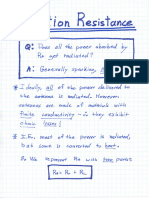 tion Resistance
Q: Does all the power absorbed by
Ra get radiated?
A: Generally speaking,
* Ideally, all of the power delivered to
the antenna is radiated. However
antennas are made of materials with
finite conductivity - they exhibit
ohmic loss!
* I.E., most of the power is radiated,
but some is converted to heat.
So we represent Ra with two parts:
Ra = Rr + RL